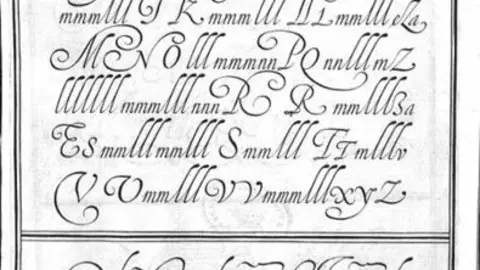 mmmlll I K mmmlll LL mmlll eZa
M N O lll mmmnn P Q nnlllmZ
llllllll mmmlllnnn R R mmlll3a
Es mmlllmmlll S mlll TT mlllv
V U mmlll V V mmmlllxyZ